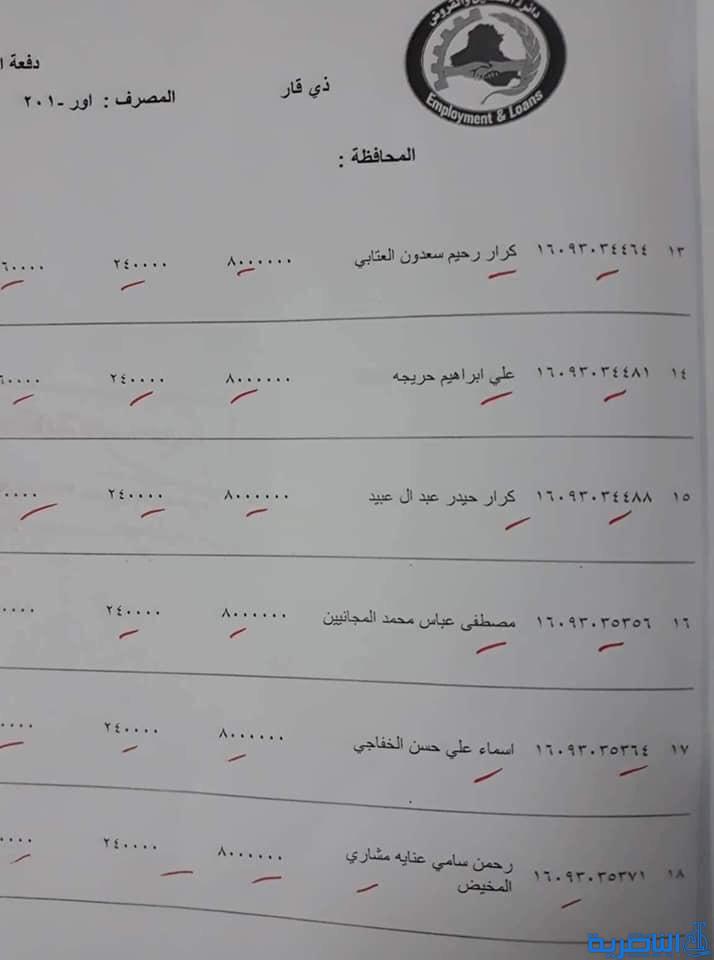 دائرة التشغيل والقروض
Employment & Loans
دفعة
ذي قار
المصرف : اور -٢٠١
المحافظة :
١٣ ١٦٠٩٣٠٣٤٤٦٤ كرار رحيم سعدون العتابي ٨٠٠٠٠٠٠ ٢٤٠٠٠٠ ٦٠٠٠٠
١٤ ١٦٠٩٣٠٣٤٤٨١ علي ابراهيم حريجه ٨٠٠٠٠٠٠ ٢٤٠٠٠٠ ٦٠٠٠٠
١٥ ١٦٠٩٣٠٣٤٤٨٨ كرار حيدر عبد ال عبيد ٨٠٠٠٠٠٠ ٢٤٠٠٠٠ ٠٠٠٠
١٦ ١٦٠٩٣٠٣٥٣٥٦ مصطفى عباس محمد المجانيين ٨٠٠٠٠٠٠ ٢٤٠٠٠٠ ٠٠٠٠
١٧ ١٦٠٩٣٠٣٥٣٦٤ اسماء علي حسن الخفاجي ٨٠٠٠٠٠٠ ٢٤٠٠٠٠ ٠٠٠٠
١٨ ١٦٠٩٣٠٣٥٣٧١ رحمن سامي عنايه مشاري ٨٠٠٠٠٠٠ ٢٤٠٠٠٠ ٠٠٠٠
المخيض
الناصرية